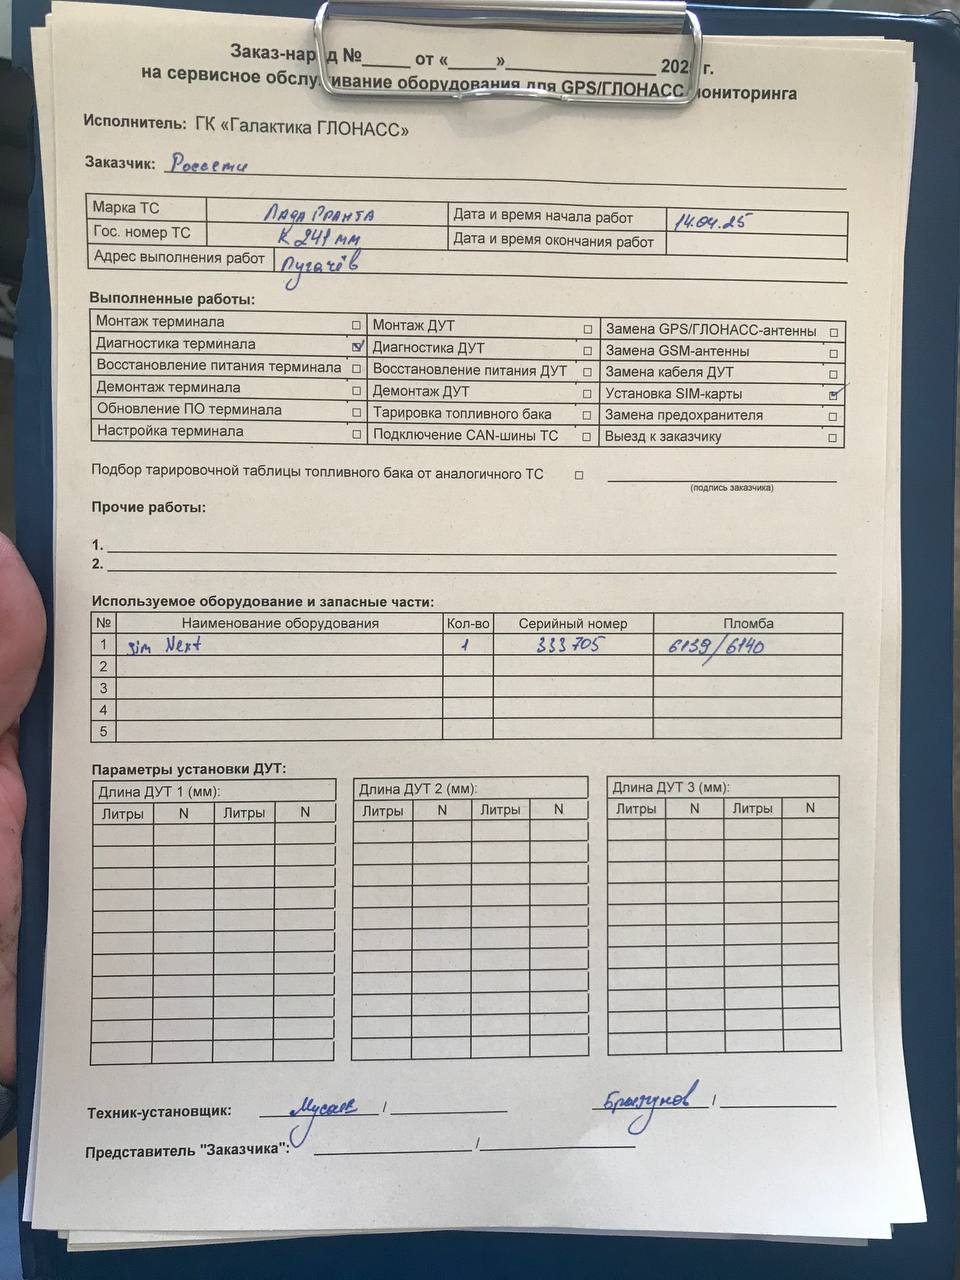 Заказ-наряд №_____ от «_____»________________ 202 г.
на сервисное обслуживание оборудования для GPS/ГЛОНАСС мониторинга
Исполнитель: ГК «Галактика ГЛОНАСС»
Заказчик: Россети
Марка ТС Лада Гранта Дата и время начала работ 14.04.25
Гос. номер ТС К 241 мм Дата и время окончания работ
Адрес выполнения работ Пугачёв
Выполненные работы:
Монтаж терминала ☐ Монтаж ДУТ ☐ Замена GPS/ГЛОНАСС-антенны ☐
Диагностика терминала ☑ Диагностика ДУТ ☐ Замена GSM-антенны ☐
Восстановление питания терминала ☐ Восстановление питания ДУТ ☐ Замена кабеля ДУТ ☐
Демонтаж терминала ☐ Демонтаж ДУТ ☐ Установка SIM-карты ☑
Обновление ПО терминала ☐ Тарировка топливного бака ☐ Замена предохранителя ☐
Настройка терминала ☐ Подключение CAN-шины ТС ☐ Выезд к заказчику ☐
Подбор тарировочной таблицы топливного бака от аналогичного ТС ☐
(подпись заказчика)
Прочие работы:
1.
2.
Используемое оборудование и запасные части:
№ Наименование оборудования Кол-во Серийный номер Пломба
1 sim Next 1 333705 6139/6140
2
3
4
5
Параметры установки ДУТ:
Длина ДУТ 1 (мм): Длина ДУТ 2 (мм): Длина ДУТ 3 (мм):
Литры N Литры N Литры N Литры N Литры N Литры N
Техник-установщик: Мусаев / /
Представитель "Заказчика": /